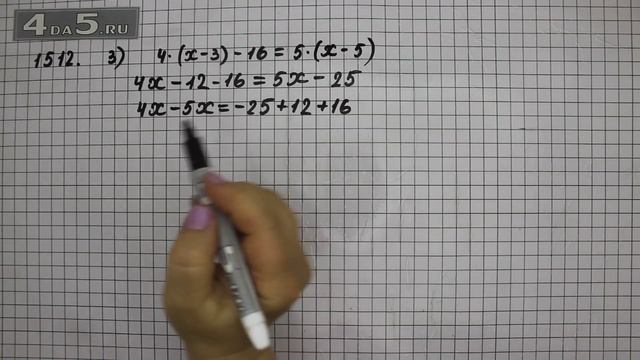 4DA5.RU
1512. 3) 4·(x-3)-16=5·(x-5)
4x-12-16=5x-25
4x-5x=-25+12+16